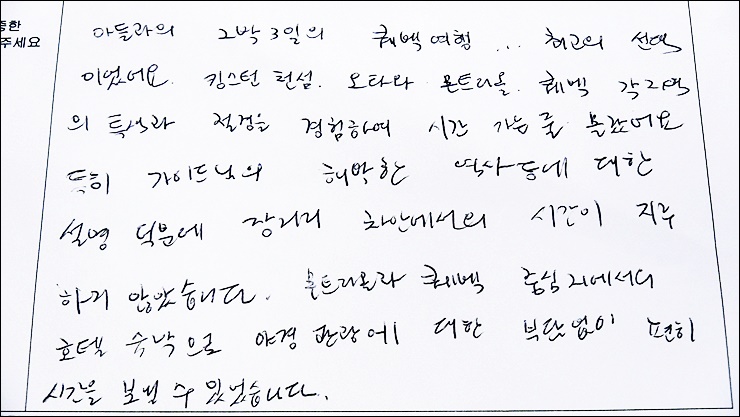 중한
주세요
아들과의 2박 3일의 퀘백여행 ... 최고의 선택
이었어요. 킹스턴 천섬. 오타와 몬트리올. 퀘벡 각 지역
의 특색과 절경을 경험하여 시간 가는 줄 몰랐어요
특히 가이드님의 해박한 역사 등에 대한
설명 덕분에 장거리 차안에서의 시간이 지루
하지 않았습니다. 몬트리올과 퀘벡 중심지에서의
호텔 숙박으로 야경 관광에 대한 부담없이 편히
시간을 보낼 수 있었습니다.